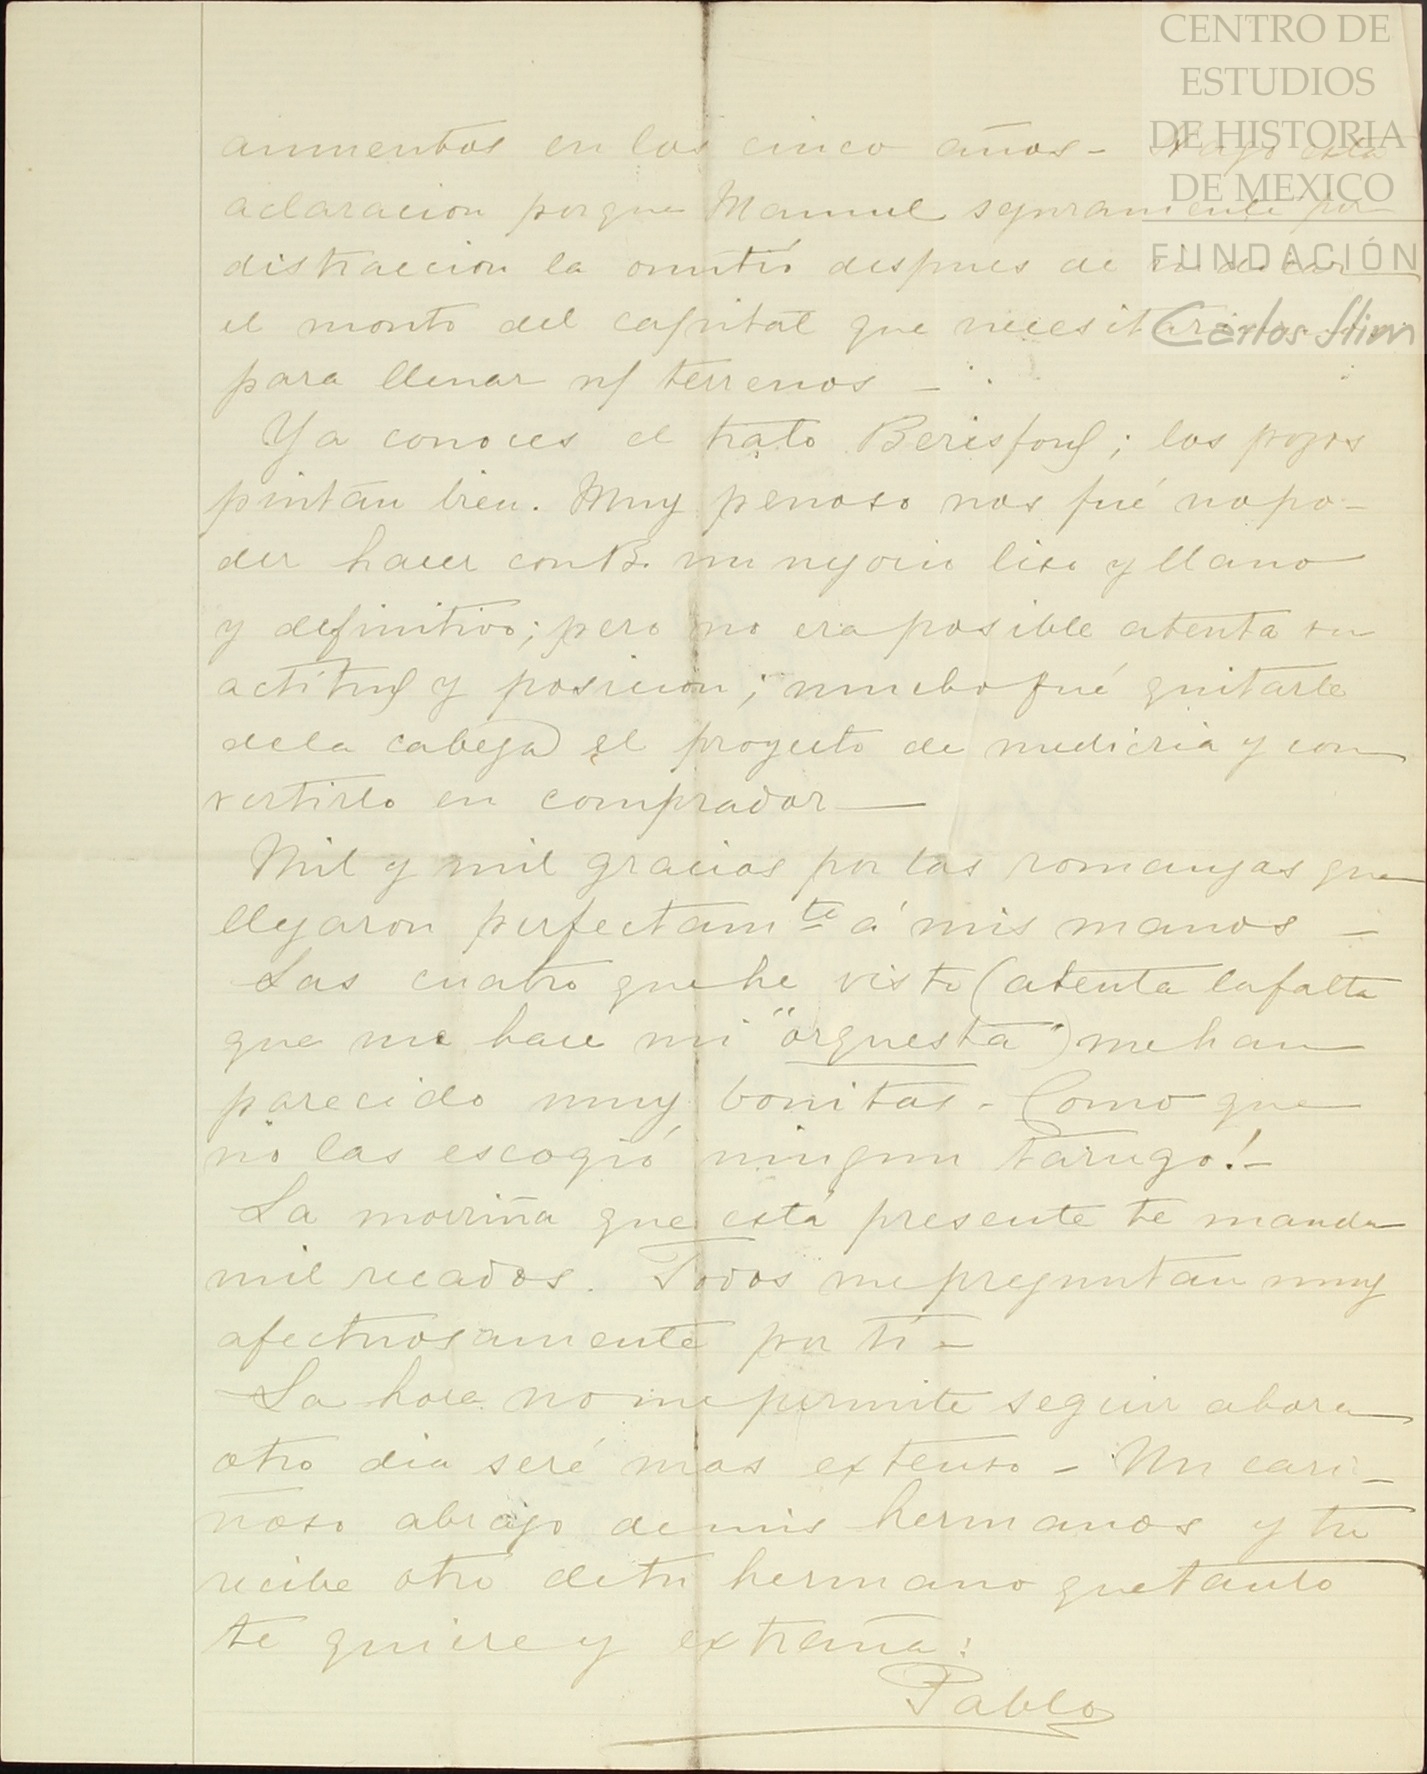 CENTRO DE
ESTUDIOS
DE HISTORIA
DE MEXICO
FUNDACIÓN
Carlos Slim
aumentos en los cinco años - Hago esta
aclaracion porque Manuel seguramente por
distraccion la omitió despues de indicar
el monto del capital que necesitari
para llenar n/ terrenos -
Ya conoces el trato Berisford; los pozos
pintan bien. Muy penoso nos fué no po-
der hacer con B. un negocio liso y llano
y definitivo; pero no era posible atenta su
actitud y posicion; mucho fué quitarle
de la cabeza el proyecto de mediería y con
vertirlo en comprador —
Mil y mil gracias por las romanzas que
llegaron perfectamte á mis manos -
Las cuatro que he visto (atenta la falta
que me hace mi "orquesta") me han
parecido muy bonitas - Como que
no las escogió ningun tarugo! -
La morriña que está presente te manda
mil recados. Todos me preguntan muy
afectuosamente por tí -
La hora no me permite seguir ahora
otro dia seré mas extenso - Un cari-
ñoso abrazo de mis hermanos y tu
recibe otro de tu hermano que tanto
te quiere y extraña:
Pablo